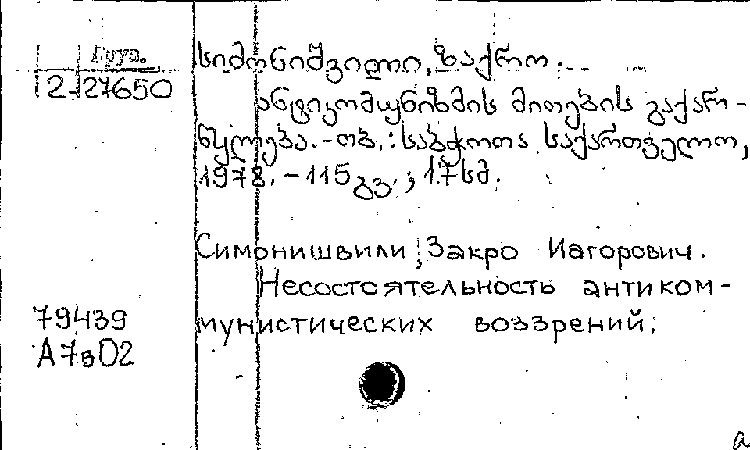 Груз.
სიმონიშვილი, ზაქრო.
2-27650
ანტიკომუნიზმის მითების გაქარ-
წყლება.-თბ.:საბჭოთა საქართველო,
1978.-115გვ.; 17სმ.
Симонишвили, Закро Иагорович.
Несостоятельность антиком-
79439
мунистических воззрений.
А7вD2
а